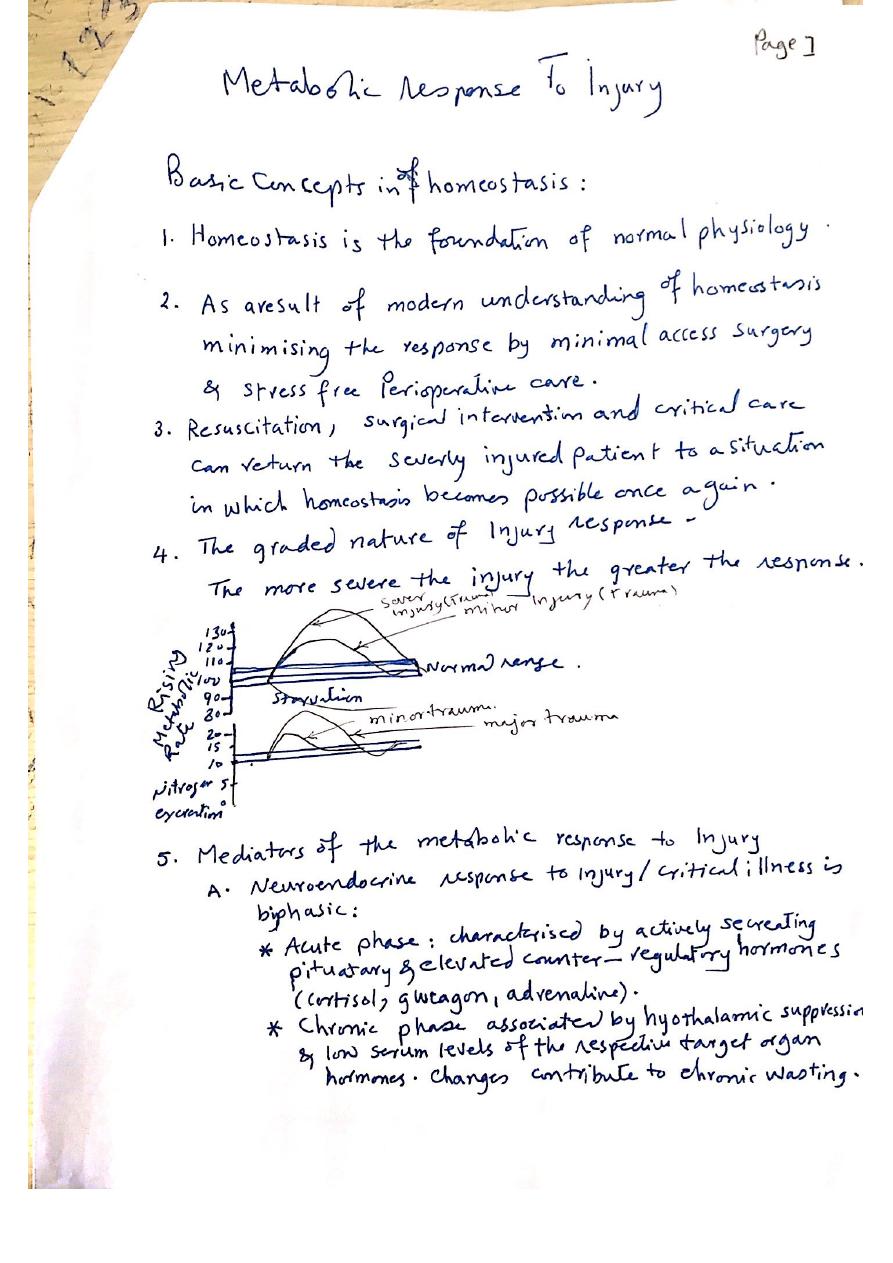 Page 1
Metabolic response To Injury
Basic Concepts in of homeostasis :
1. Homeostasis is the foundation of normal physiology .
2. As aresult of modern understanding of homeostasis
minimising the response by minimal access surgery
& stress free Perioperative care .
3. Resuscitation, surgical intervention and critical care
can return the severly injured patient to a situation
in which homeostasis becomes possible once again .
4. The graded nature of Injury response -
The more severe the injury the greater the response .
sever injury (trauma)
minor Injury (trauma)
130
120
110
100
90
80
Rising
Metabolic
Rate
Normal renge .
Starvation
minor trauma
major trauma
20
15
10
5
0
Nitrogen
excretion
5. Mediators of the metabolic response to Injury
A. Neuroendocrine response to injury / critical illness is
biphasic :
* Acute phase : characterised by actively secreating
pituatary & elevated counter - regulatory hormones
(Cortisol, glucagon, adrenaline).
* Chronic phase associated by hyothalamic suppression
& low serum levels of the respective target organ
hormones . changes contribute to chronic wasting .